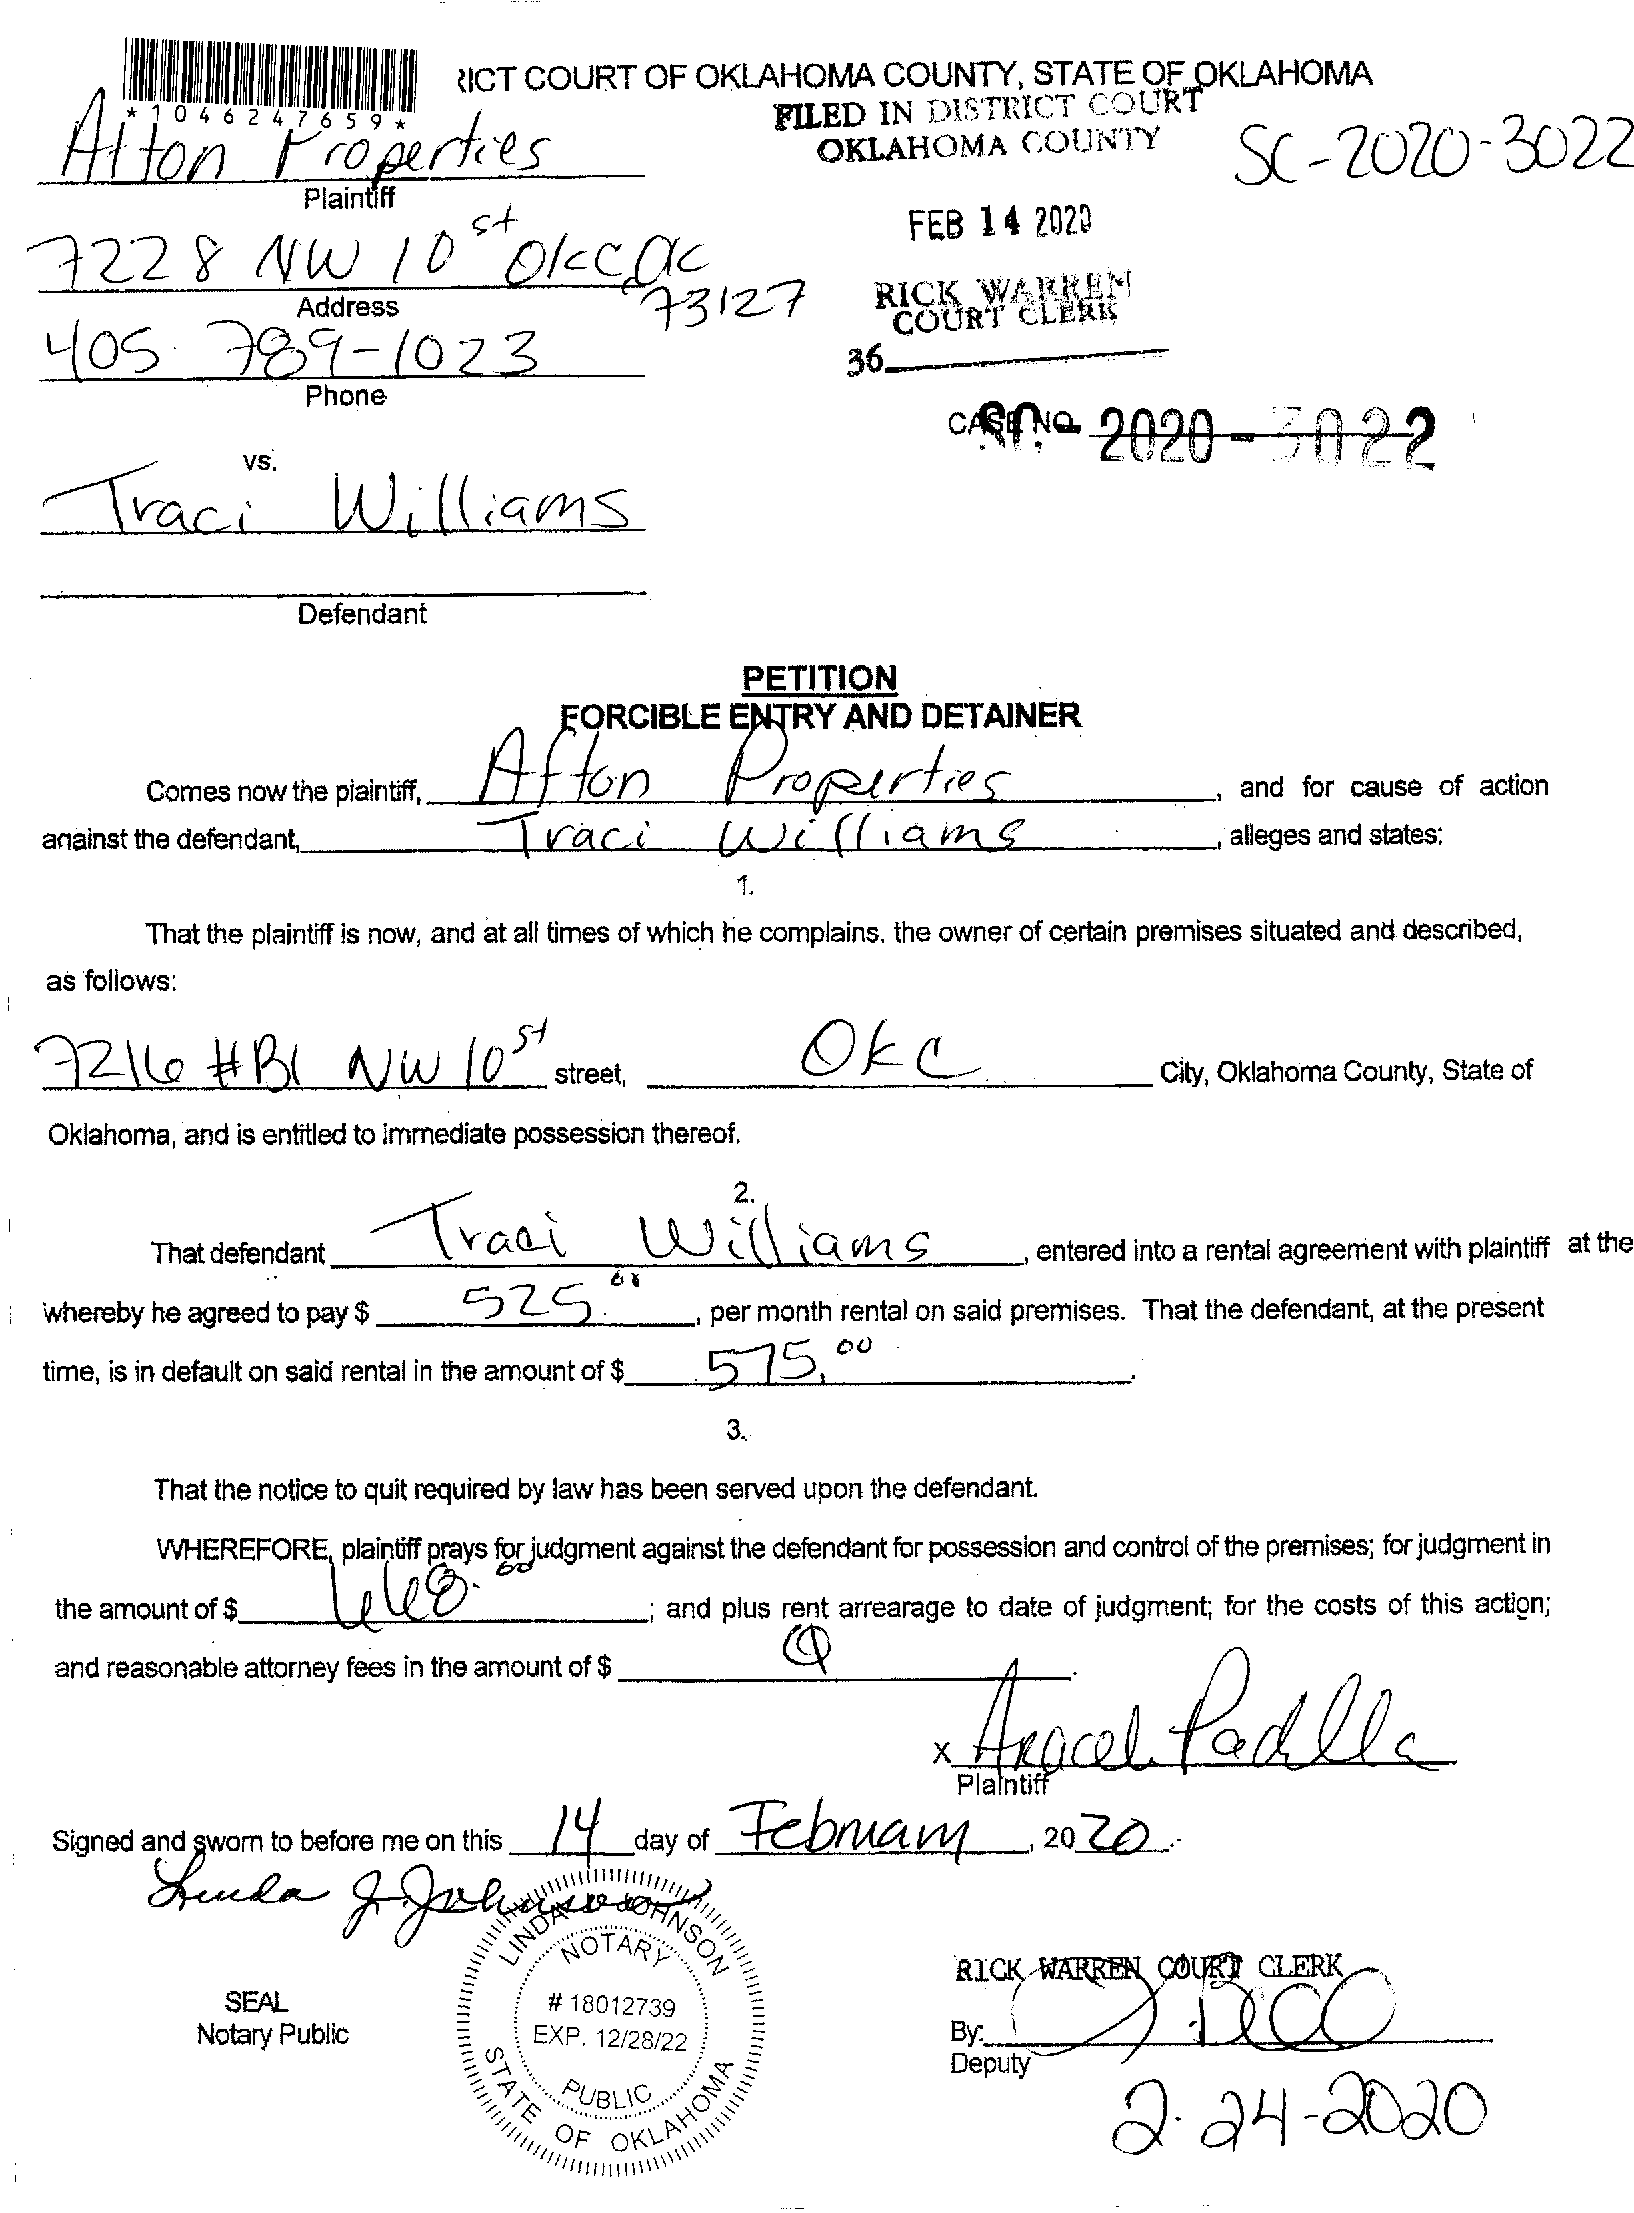 RICT COURT OF OKLAHOMA COUNTY, STATE OF OKLAHOMA
*1046247659*
FILED IN DISTRICT COURT
OKLAHOMA COUNTY
SC-2020-3022
Afton Properties
Plaintiff
FEB 14 2020
7228 NW 10st OKC OK
73127
Address
RICK WARREN
COURT CLERK
405 789-1023
Phone
36
CASE NO. 2020-3022
vs.
Traci Williams
Defendant
PETITION
FORCIBLE ENTRY AND DETAINER
Comes now the plaintiff, Afton Properties, and for cause of action
against the defendant, Traci Williams, alleges and states:
1.
That the plaintiff is now, and at all times of which he complains, the owner of certain premises situated and described,
as follows:
7216 #B1 NW 10st street, OKC City, Oklahoma County, State of
Oklahoma, and is entitled to immediate possession thereof.
2.
That defendant Traci Williams, entered into a rental agreement with plaintiff at the
whereby he agreed to pay $ 525.00, per month rental on said premises. That the defendant, at the present
time, is in default on said rental in the amount of $ 575.00.
3.
That the notice to quit required by law has been served upon the defendant.
WHEREFORE, plaintiff prays for judgment against the defendant for possession and control of the premises; for judgment in
the amount of $ 668.00; and plus rent arrearage to date of judgment; for the costs of this action;
and reasonable attorney fees in the amount of $
x Araceli Padilla
Plaintiff
Signed and sworn to before me on this 14 day of February, 2020.
Linda J. Johnson
LINDA JOHNSON
NOTARY
# 18012739
EXP. 12/28/22
PUBLIC
STATE OF OKLAHOMA
SEAL
Notary Public
RICK WARREN COURT CLERK
By:
Deputy
2-24-2020